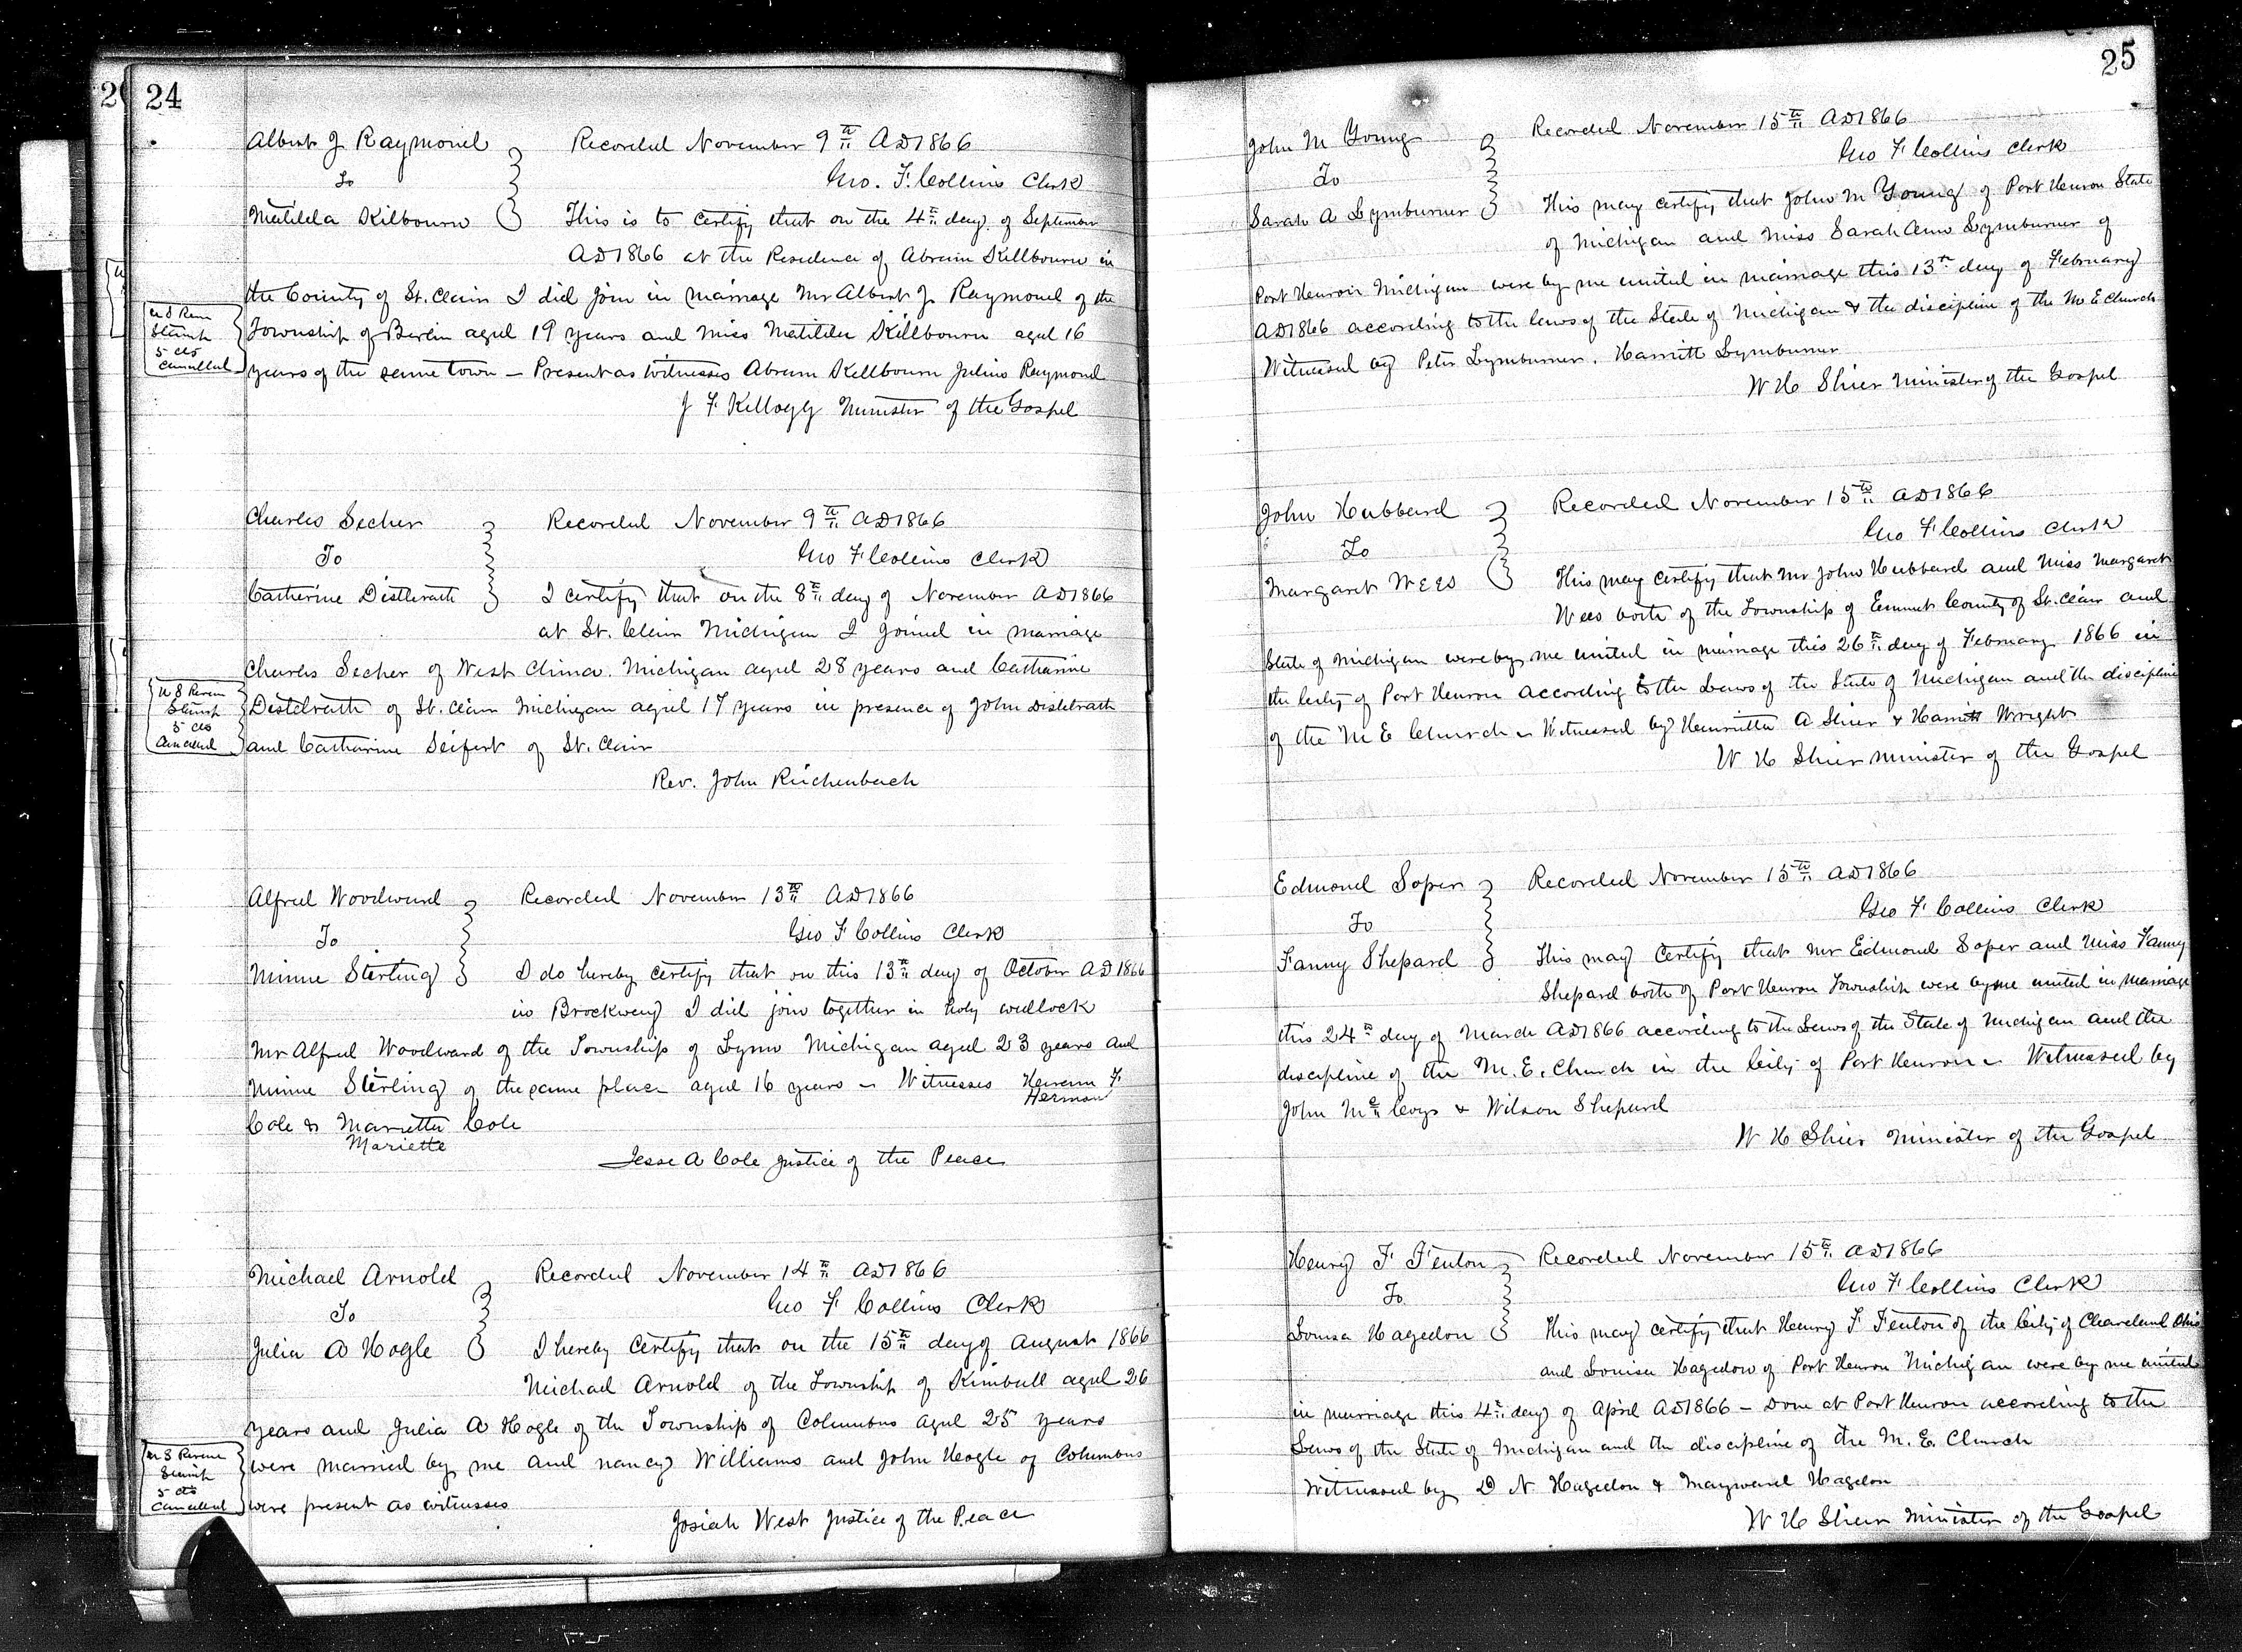 24
Albert J Raymond
To
Matilda Kilbourn
Recorded November 9th AD1866
Geo. F. Collins Clerk
This is to certify that on the 4th day of September
AD1866 at the Residence of Abram Killbourn in
the County of St. Clair I did join in marriage Mr Albert J. Raymond of the
Township of Berlin aged 19 years and Miss Matilda Killbourn aged 16
years of the same town – Present as witnesses Abram Killbourn Julius Raymond
J F Kellogg Minister of the Gospel
U S Reve
Stamp
5 cts
Cancelled
Charles Secher
To
Catherine Distlrath
Recorded November 9th AD1866
Geo F Collins Clerk
I certify that on the 8th day of November AD1866
at St. Clair Michigan I joined in marriage
Charles Secher of West China Michigan aged 28 years and Catharine
Distelrath of St. Clair Michigan aged 17 years in presence of John Distelrath
and Catharine Seifert of St. Clair
Rev. John Reichenbach
U S Reven
Stamp
5 cts
Cancelled
Alfred Woodward
To
Minnie Sterling
Recorded November 13th AD1866
Geo F Collins Clerk
I do hereby certify that on this 13th day of October AD 1866
in Brockway I did join together in holy wedlock
Mr Alfred Woodward of the Township of Lynn Michigan aged 23 years and
Minnie Sterling of the same place aged 16 years – Witnesses F.
Herman
Cole & Marrietta Cole
Mariette
Jesse A Cole Justice of the Peace
Michael Arnold
To
Julia A Hogle
Recorded November 14th AD1866
Geo F Collins Clerk
I hereby certify that on the 15th day of August 1866
Michael Arnold of the Township of Kimball aged 26
years and Julia A Hogle of the Township of Columbus aged 25 years
were married by me and nancy Williams and John Hogle of Columbus
were present as witnesses
Josiah West Justice of the Peace
U S Revenue
Stamp
5 cts
Cancelled
25
John M Young
To
Sarah A Lymburner
Recorded November 15th AD1866
Geo F Collins Clerk
This may certify that John M Young of Port Huron State
of Michigan and Miss Sarah Ann Lymburner of
Port Huron Michigan were by me united in marriage this 13th day of February
AD1866 according to the laws of the State of Michigan & the discipline of the M E Church
Witnessed by Peter Lymburner. Harriett Lymburner
W H Shier Minister of the Gospel
John Hubbard
To
Margaret Wees
Recorded November 15th AD1866
Geo F Collins Clerk
This may certify that Mr John Hubbard and Miss Margaret
Wees both of the Township of Emmet County of St. Clair and
State of Michigan were by me united in marriage this 26th day of February 1866 in
the City of Port Huron according to the Laws of the State of Michigan and the discipline
of the M E Church – Witnessed by Henrietta A Shier & Harriett Wright
W H Shier Minister of the Gospel
Edmond Soper
To
Fanny Shepard
Recorded November 15th AD1866
Geo F Collins Clerk
This may Certify that Mr Edmond Soper and Miss Fanny
Shepard both of Port Huron Township were by me united in marriage
this 24th day of March AD1866 according to the Laws of the State of Michigan and the
discipline of the M. E. Church in the City of Port Huron – Witnessed by
John McCoys & Wilson Shepard
W H Shier Minister of the Gospel
Henry F Fenton
To
Louisa Hagedon
Recorded November 15th AD1866
Geo F Collins Clerk
This may certify that Henry F Fenton of the City of Cleaveland Ohio
and Louisa Hagedon of Port Huron Michigan were by me united
in marriage this 4th day of April AD1866 – Done at Port Huron according to the
Laws of the State of Michigan and the discipline of the M. E. Church
Witnessed by D N Hagedon & Mayward Hagedon
W H Shier Minister of the Gospel